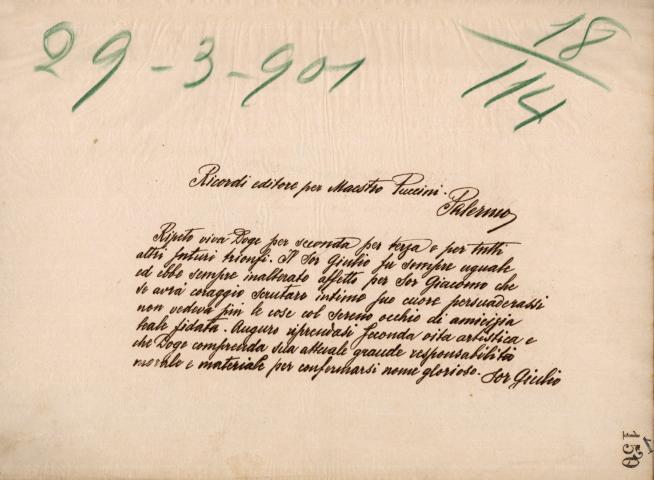 29-3-901
18/114
Ricordi editore per Maestro Puccini.
Palermo
Ripeto viva Doge per seconda per terza e per tutti
altri futuri trionfi. Il Sor Giulio fu sempre uguale
ed ebbe sempre inalterato affetto per Sor Giacomo che
se avrà coraggio scrutare intimo suo cuore persuaderassi
non vedeva più le cose col sereno occhio di amicizia
leale fidata. Auguro riprendasi feconda vita artistica e
che Doge comprenda sua attuale grande responsabilità
morale e materiale per confermarsi nome glorioso. Sor Giulio
150
1